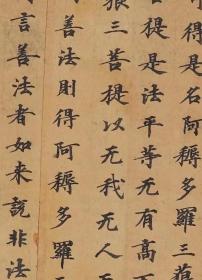 可得是名阿耨多羅三藐
菩提是法平等无有高下
藐三菩提以无我无人无
善法則得阿耨多羅三
言善法者如来說非法